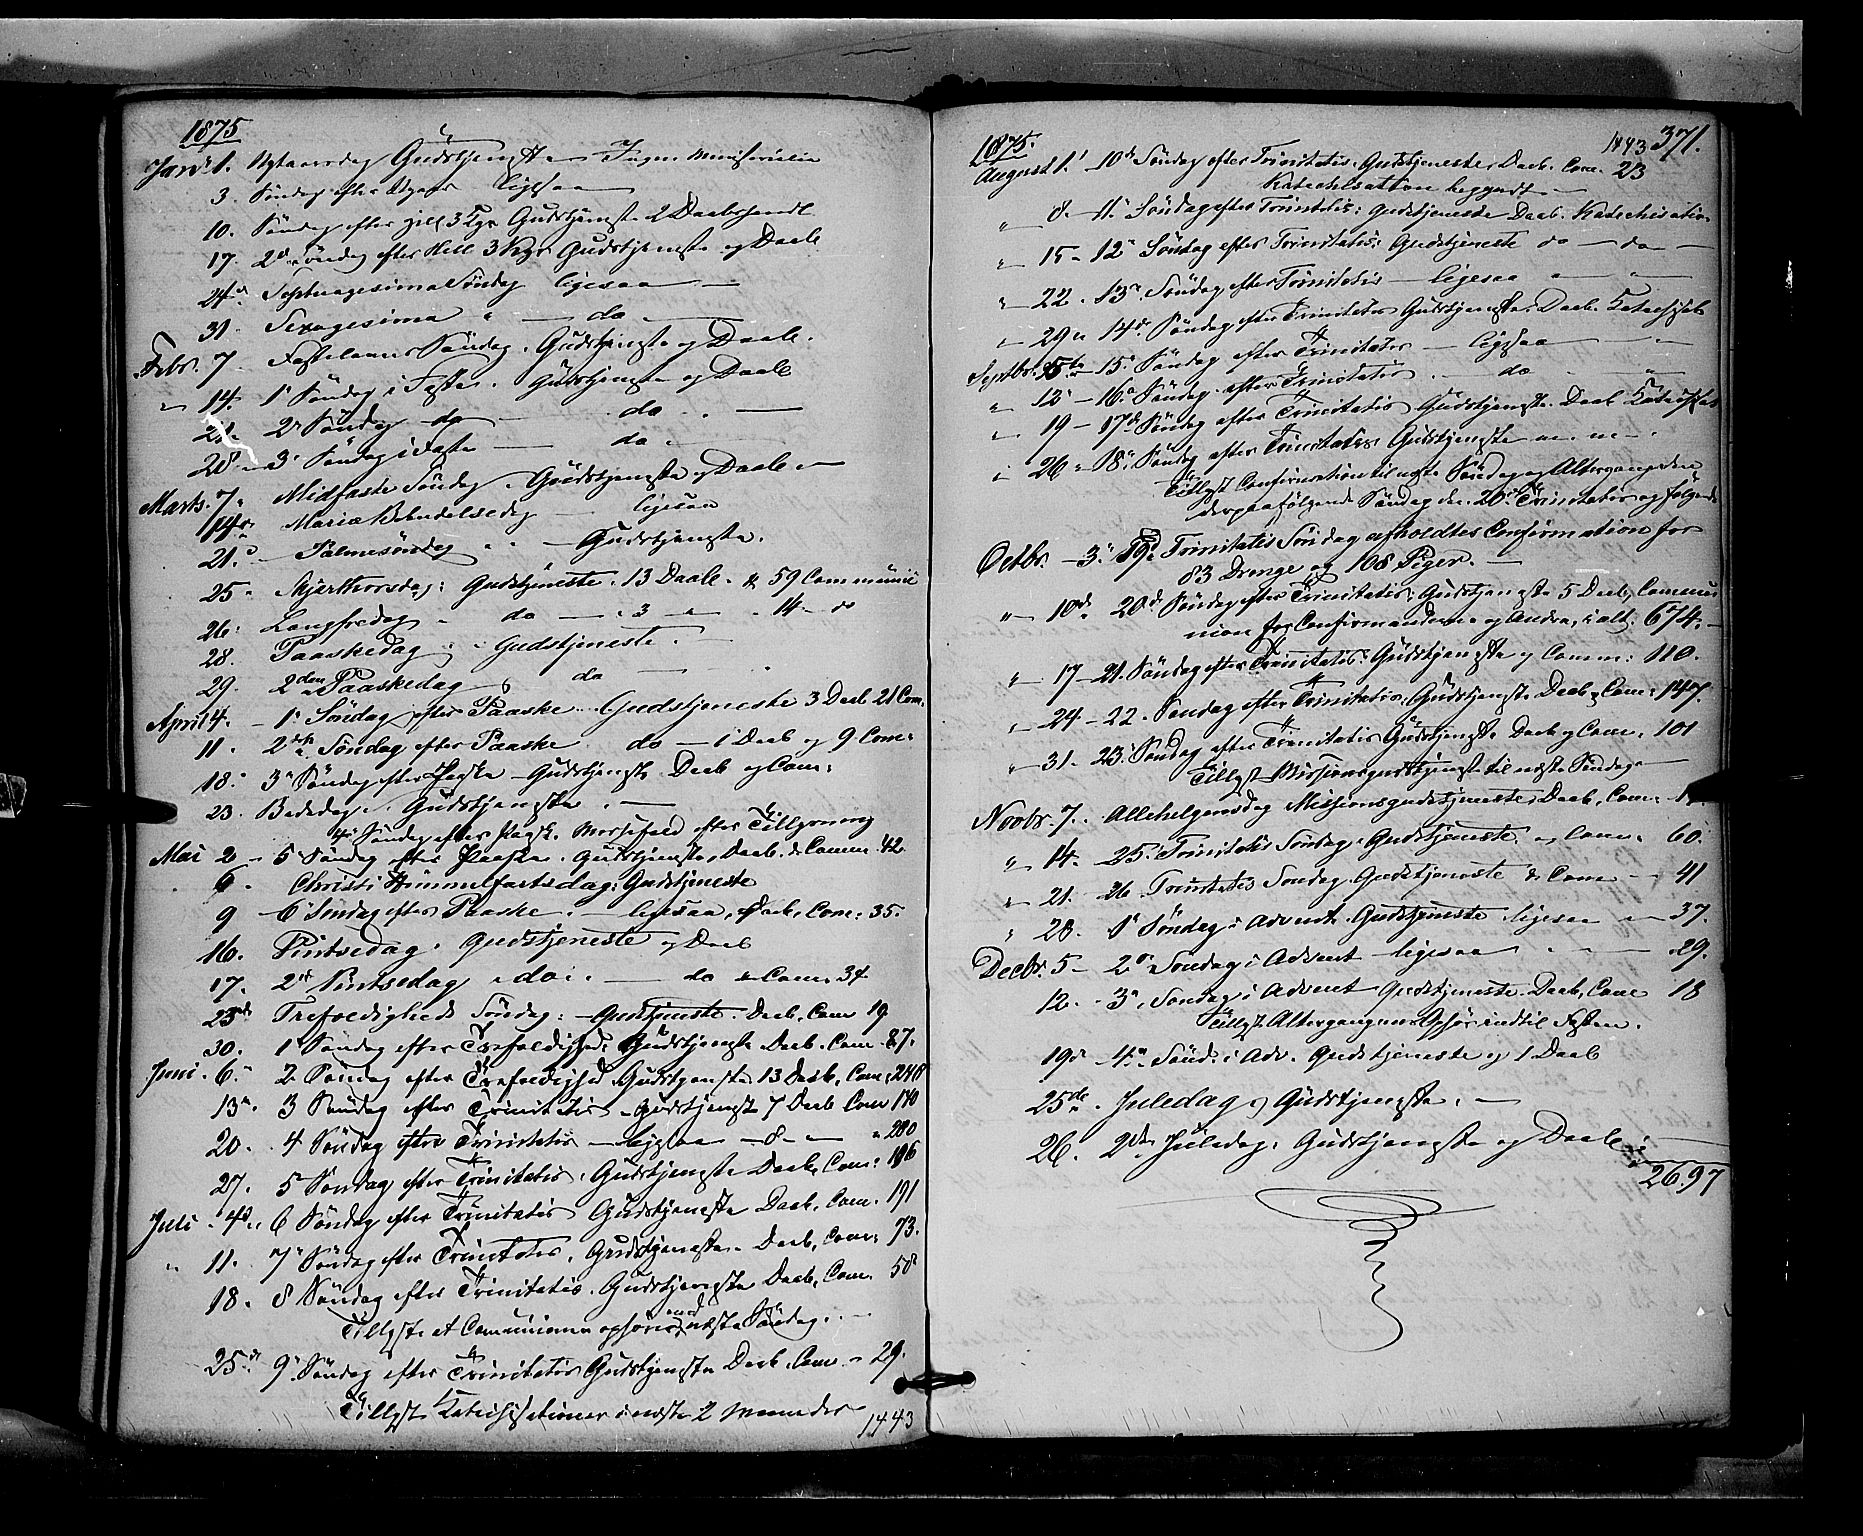 1875
Jan. 1. Nytaarsdag Gudstjeneste Ingen Ministerialia
3. Søndag efter Nytaar ligesaa
10. Søndag efter hell 3 Kgr Gudstjeneste 2 Daab
17. 2d Søndag efter Hell 3 Kgr Gudstjeneste og Daab
24d Septuagesima Søndag ligesaa —
31. Sexagesima " — do —
Febr. 7. Fastelavns Søndag. Gudstjeneste og Daab.
" 14. 1' Søndag i Faste. Gudstjeneste og Daab
21. 2' Søndag do — do. —
28 — 3' Søndag i Faste — do —
Marts. 7. Midfaste Søndag. Gudstjeneste og Daab —
14. Mariæ Bebudelsesdag — ligesaa
21. — Palmesøndag — Gudstjeneste.
25. Skjærthorsdag: Gudstjeneste. 13 Daab. & 59 Communic
26. Langfredag — do — 3 — " 14 — do
28. Paaskedag. Gudstjeneste. —
29. 2den Paaskedag do —
April 4. — 1' Søndag efter Paaske Gudstjeneste 3 Daab 21 Com.
11. 2den Søndag efter Paaske. do — 1 Daab og 9 Com:
18. 3' Søndag efter Paaske — Gudstjeneste. Daab og Com:
23. Bededag. Gudstjeneste. —
4' Søndag efter Paaske. Messefald efter Tillysning
Mai 2 — 5' Søndag efter Paaske. Gudstjeneste, Daab. & Comm. 42
6. Christi Himmelfartsdag: Gudstjeneste
9 — 6' Søndag efter Paaske. — ligesaa, Daab, Com: 35.
16. Pintsedag. Gudstjeneste og Daab
17. 2d Pintsedag do: — do & Com. 34
23d Trefoldigheds Søndag: — Gudstjeneste. Daab, Com 19
30. 1' Søndag efter Trefoldighed. Gudstjeneste Daab. Com. 87.
Juni. 6. 2 Søndag efter Trefoldighed Gudstjeneste 13 Daab, Com: 248
13. 3 Søndag efter Trinitatis — Gudstjeneste 7 Daab Com 170
20. 4 Søndag efter Trinitatis — ligesaa — 8 — " 280
27. 5 Søndag efter Trinitatis. Gudstjeneste Daab, Com: 186
Juli. 4d. 6 Søndag efter Trinitatis Gudstjeneste Daab, Com. 191
" 11. 7' Søndag efter Trinitatis. Gudstjeneste. Daab, Com: 73.
18. 8 Søndag efter Trinitatis. Gudstjeneste Daab, Com. 58
Tillyste at Communionen ophører med næste Søndag. —
25. 9' Søndag efter Trinitatis Gudstjeneste Daab. Com — 29.
Tillyst Katechisationer i næste 2 Maaneder
1443
1875. 1443 371.
August 1' 10d Søndag efter Trinitatis: Gudstjeneste, Daab. Com. 23
Katechisation begyndt —
" 8. — 11. Søndag efter Trinitatis: Gudstjeneste Daab. Katechisation
" 15 — 12 Søndag efter Trinitatis: Gudstjeneste do — do —
" 22. 13. Søndag efter Trinitatis — ligesaa — —
" 29. 14d. Søndag efter Trinitatis Gudstjeneste. Daab. Katechisat
Septbr. 5te — 15' Søndag efter Trinitatis — ligesaa —
" 12 — 16. Søndag efter Trinitatis — do —
" 19 — 17d Søndag efter Trinitatis Gudstjeneste. Daab Katechisat
" 26 — 18' Søndag efter Trinitatis Gudstjeneste — —
Tillyst Confirmation til næste Søndag og Altergang den
derpaafølgende Søndag den 20. Trinitatis og følgende
Octbr. — 3. 19' Trinitatis Søndag afholdtes Confirmation for
83 Drenge og 108 Piger. —
" 10d. 20d Søndag efter Trinitatis: Gudstjeneste 5 Daab, Commu
nion for Confirmanderne og Andre, i alt: 674. —
" 17 — 21. Søndag efter Trinitatis: Gudstjeneste og Comm: 110.
" 24 — 22. Søndag efter Trinitatis. Gudstjeneste Daab, Com: 147.
" 31. 23. Søndag efter Trinitatis Gudstjeneste Daab og Com. 101
Tillyst Missionsgudstjeneste til næste Søndag —
Novbr. 7. Allehelgensdag Missionsgudstjeneste, Daab, Com:
" 14. 25. Trinitatis Søndag. Gudstjeneste. og Com. 60.
" 21. 26. Trinitatis Søndag. Gudstjeneste & Com — 41
" 28. 1' Søndag i Advent. Gudstjeneste ligesaa — 37.
Decbr. 5 — 2' Søndag i Advent ligesaa — 29.
12. — 3'. Søndag i Advent — Gudstjeneste. Daab, Com 18
Tillyst Altergangenes Ophør indtil Festen.
19 — 4. Sønd. i Adv. Gudstjeneste og 1 Daab
25de. Juledag Gudstjeneste. —
26. 2den Juledag. Gudstjeneste og Daab
2697